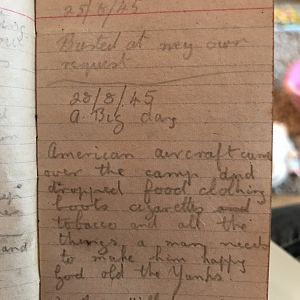 25/8/45
Busted at my own
request
28/8/45
a Big day
American aircraft came
over the camp and
dropped food clothing
boots cigarettes and
tobacco and all the
things a man needs
to make him happy
God old the Yanks
and